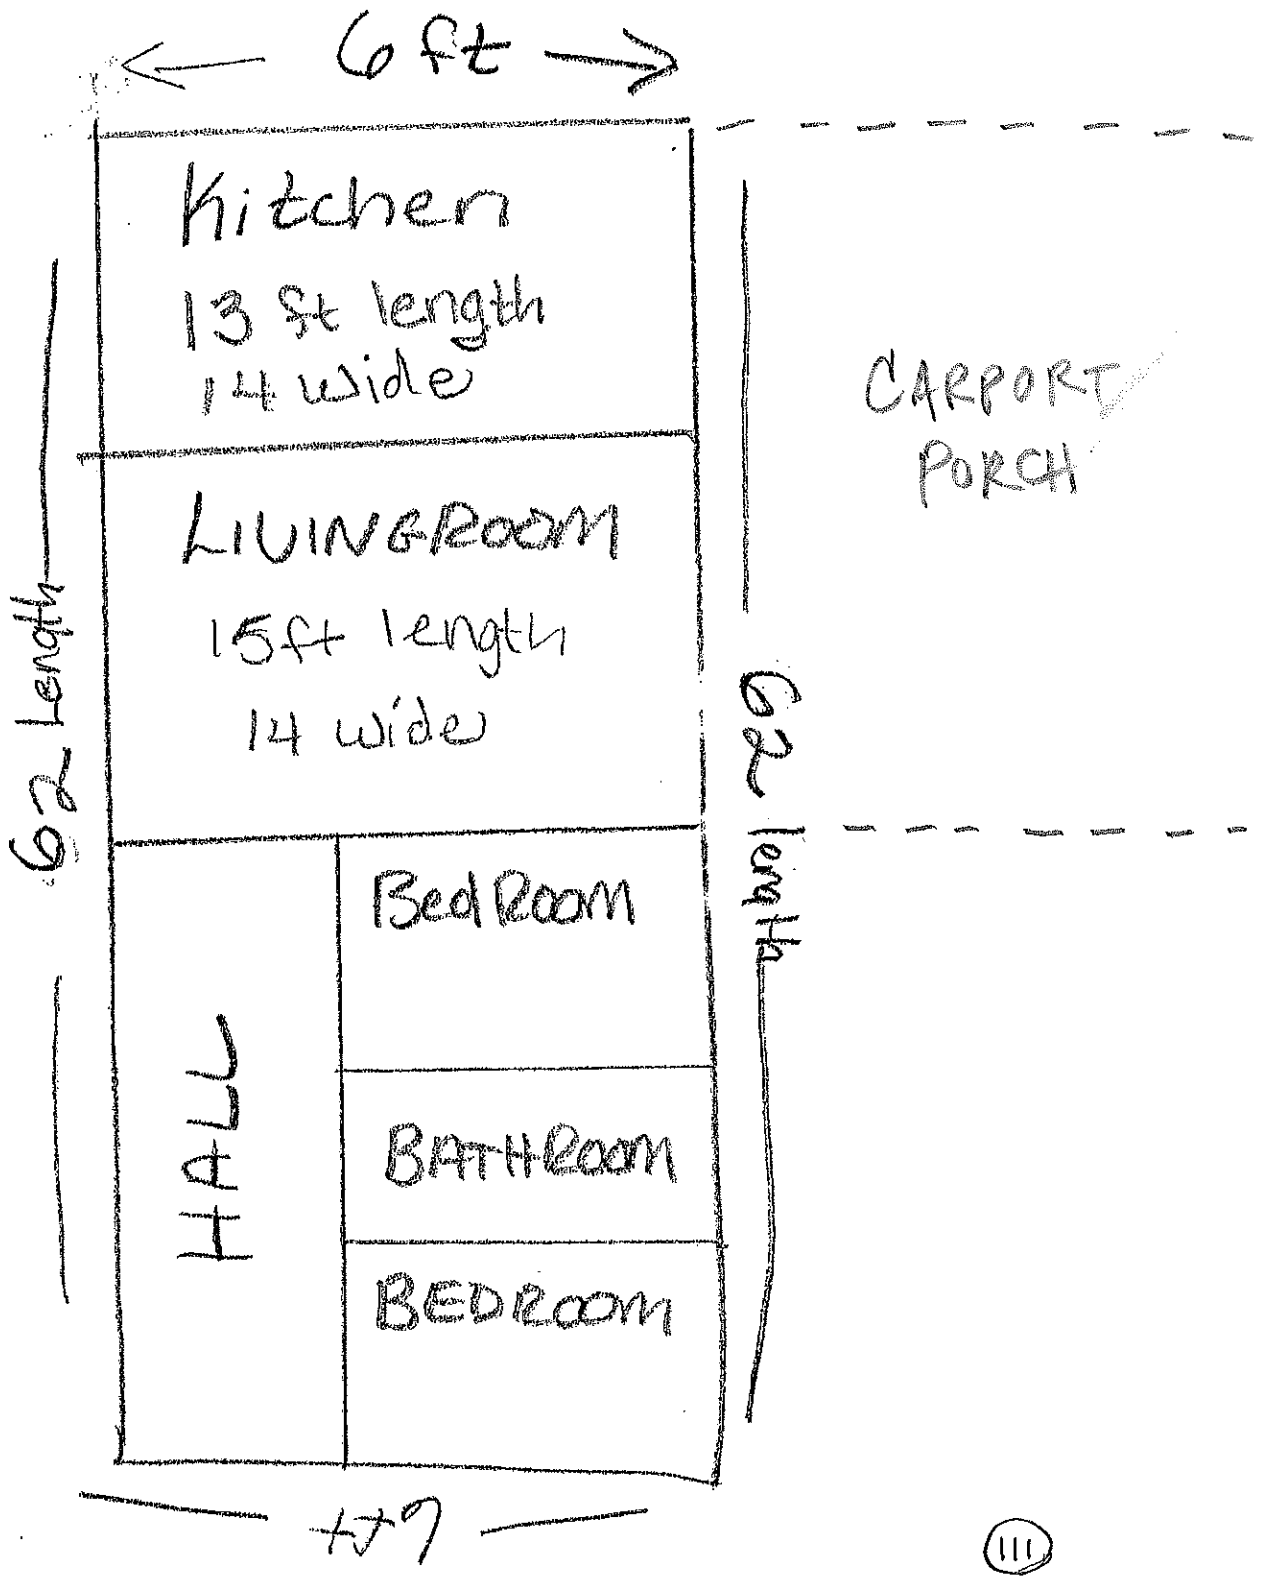 6 ft
Kitchen
13 ft length
14 wide
CARPORT
PORCH
LIVINGROOM
15ft length
14 wide
62 Length
62 length
BedROOM
HALL
BATHROOM
BEDROOM
6 ft
III